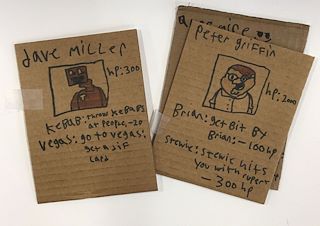 dave Miller
hp:300
KEBAB: throw KEBABS
at people, -20
Vegas: go to vegas:
get a JiF
Lapd
Peter griffin
hp:2000
Brian: get Bit By
Brian: -100hp
Stewie: Stewie hits
you with rupert
-300hp